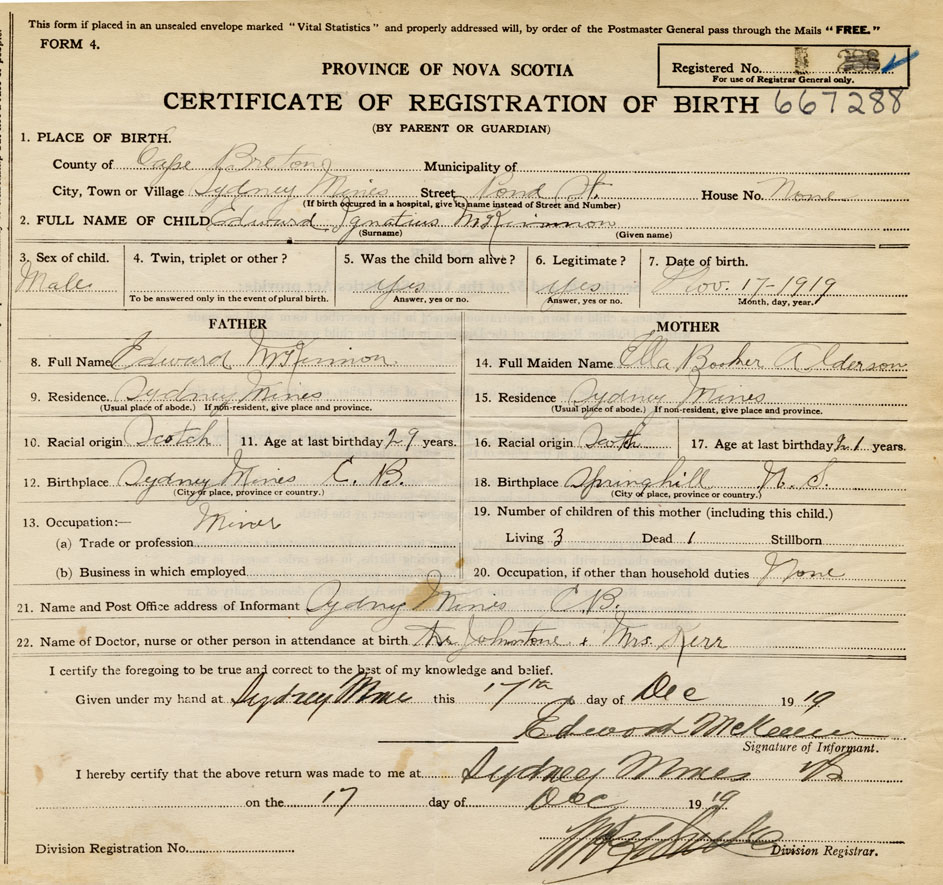 This form if placed in an unsealed envelope marked "Vital Statistics" and properly addressed will, by order of the Postmaster General pass through the Mails "FREE."
FORM 4.
Registered No.
For use of Registrar General only.
PROVINCE OF NOVA SCOTIA
CERTIFICATE OF REGISTRATION OF BIRTH 667288
(BY PARENT OR GUARDIAN)
1. PLACE OF BIRTH.
County of Cape Breton Municipality of
City, Town or Village Sydney Mines Street Pond St. House No. None
(If birth occurred in a hospital, give its name instead of Street and Number)
2. FULL NAME OF CHILD Edward Ignatius McKinnon
(Surname) (Given name)
3. Sex of child. 4. Twin, triplet or other? 5. Was the child born alive? 6. Legitimate? 7. Date of birth.
Male Yes Yes Nov. 17-1919
To be answered only in the event of plural birth. Answer, yes or no. Answer, yes or no. Month, day, year.
FATHER MOTHER
8. Full Name Edward McKinnon 14. Full Maiden Name Ella Booker Alderson
9. Residence. Sydney Mines 15. Residence Sydney Mines
(Usual place of abode.) If non-resident, give place and province. (Usual place of abode.) If non-resident, give place and province.
10. Racial origin Scotch 11. Age at last birthday 29 years. 16. Racial origin Scoth 17. Age at last birthday 21 years.
12. Birthplace Sydney Mines C. B. 18. Birthplace Springhill N. S.
(City or place, province or country.) (City or place, province or country.)
13. Occupation:— Miner 19. Number of children of this mother (including this child.)
(a) Trade or profession Living 3 Dead 1 Stillborn
(b) Business in which employed 20. Occupation, if other than household duties None
21. Name and Post Office address of Informant Sydney Mines C.B.
22. Name of Doctor, nurse or other person in attendance at birth Johnstone & Mrs. Kerr
I certify the foregoing to be true and correct to the best of my knowledge and belief.
Given under my hand at Sydney Mines this 17th day of Dec 1919
Edward McKinnon
Signature of Informant.
I hereby certify that the above return was made to me at Sydney Mines
on the 17 day of Dec 1919
Division Registration No. Division Registrar.